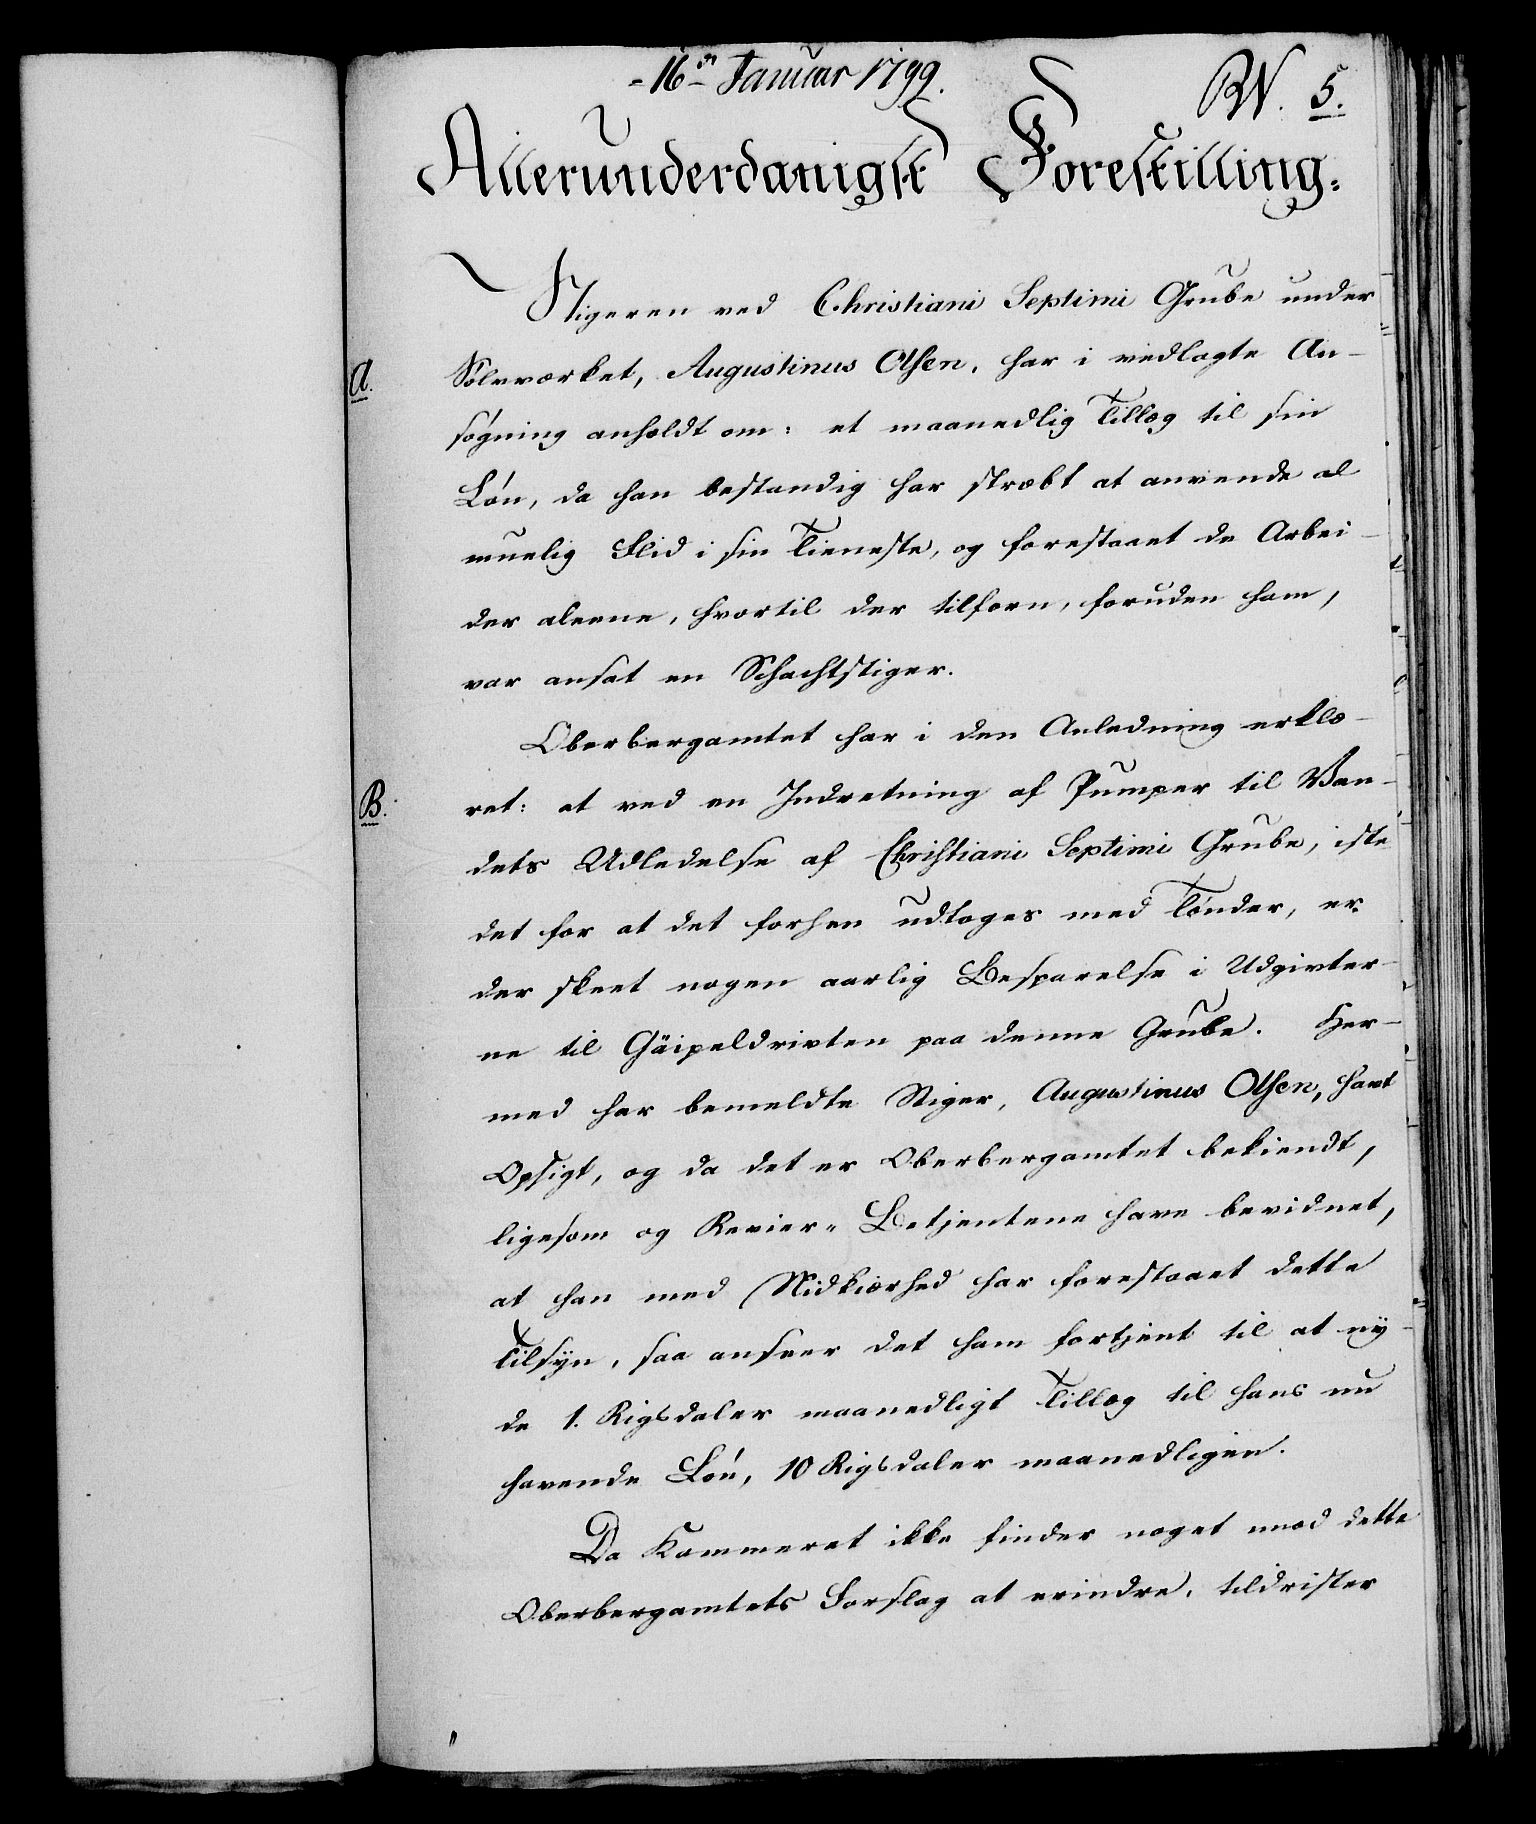 16de Januar 1799.
RN. 5.
Allerunderdanigst Forestilling.
Stigeren ved Christiani Septimi Grube under
a.
Sølvværket, Augustinus Olsen, har i vedlagte An-
søgning anholdt om: et maanedlig Tillæg til sin
Løn, da han bestandig har stræbt at anvende al
muelig Flid i sin Tieneste, og forestaaet de Arbei-
der aleene, hvortil der tilforn, foruden ham,
var ansat en Schachtstiger.
Oberbergamtet har i den Anledning erklæ-
B.
ret: at ved en Indretning af Pumper til Van-
dets Udledelse af Christiani Septimi Grube, iste
det for at det forhen udtoges med Tønder, er
der skeet nogen aarlig Besparelse i Udgivter-
ne til Gäipeldrivten paa denne Grube. Her-
med har bemeldte Stiger, Augustinus Olsen, havt
Opsigt, og da det er Oberbergamtet bekiendt,
ligesom og Revier-Betjentene have bevidnet,
at han med Nidkiærhed har forestaaet dette
Tilsyn, saa ansees det ham fortjent til at ny-
de 1. Rigsdaler maanedligt Tillæg til hans nu
havende Løn, 10 Rigsdaler maanedligen.
Da Kammeret ikke finder noget mod dette
Oberbergamtets Forslag at erindre, tildrister